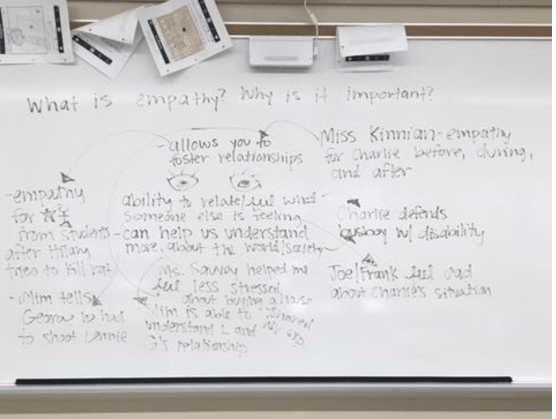 What is empathy? Why is it important?
- allows you to
foster relationships
ability to relate/feel what
someone else is feeling
- can help us understand
more about the world/society
Miss Kinnian - empathy
for Charlie before, during,
and after
Charlie defends
busboy w/ disability
Joe/Frank feel bad
about Charlie's situation
- empathy
for
from students
after Hilary
tries to kill rat
- Slim tells
George he had
to shoot Lennie
Ms. helped me
feel less stressed
about buying a house
- Slim is able to
understand L and
G's relationship
shared